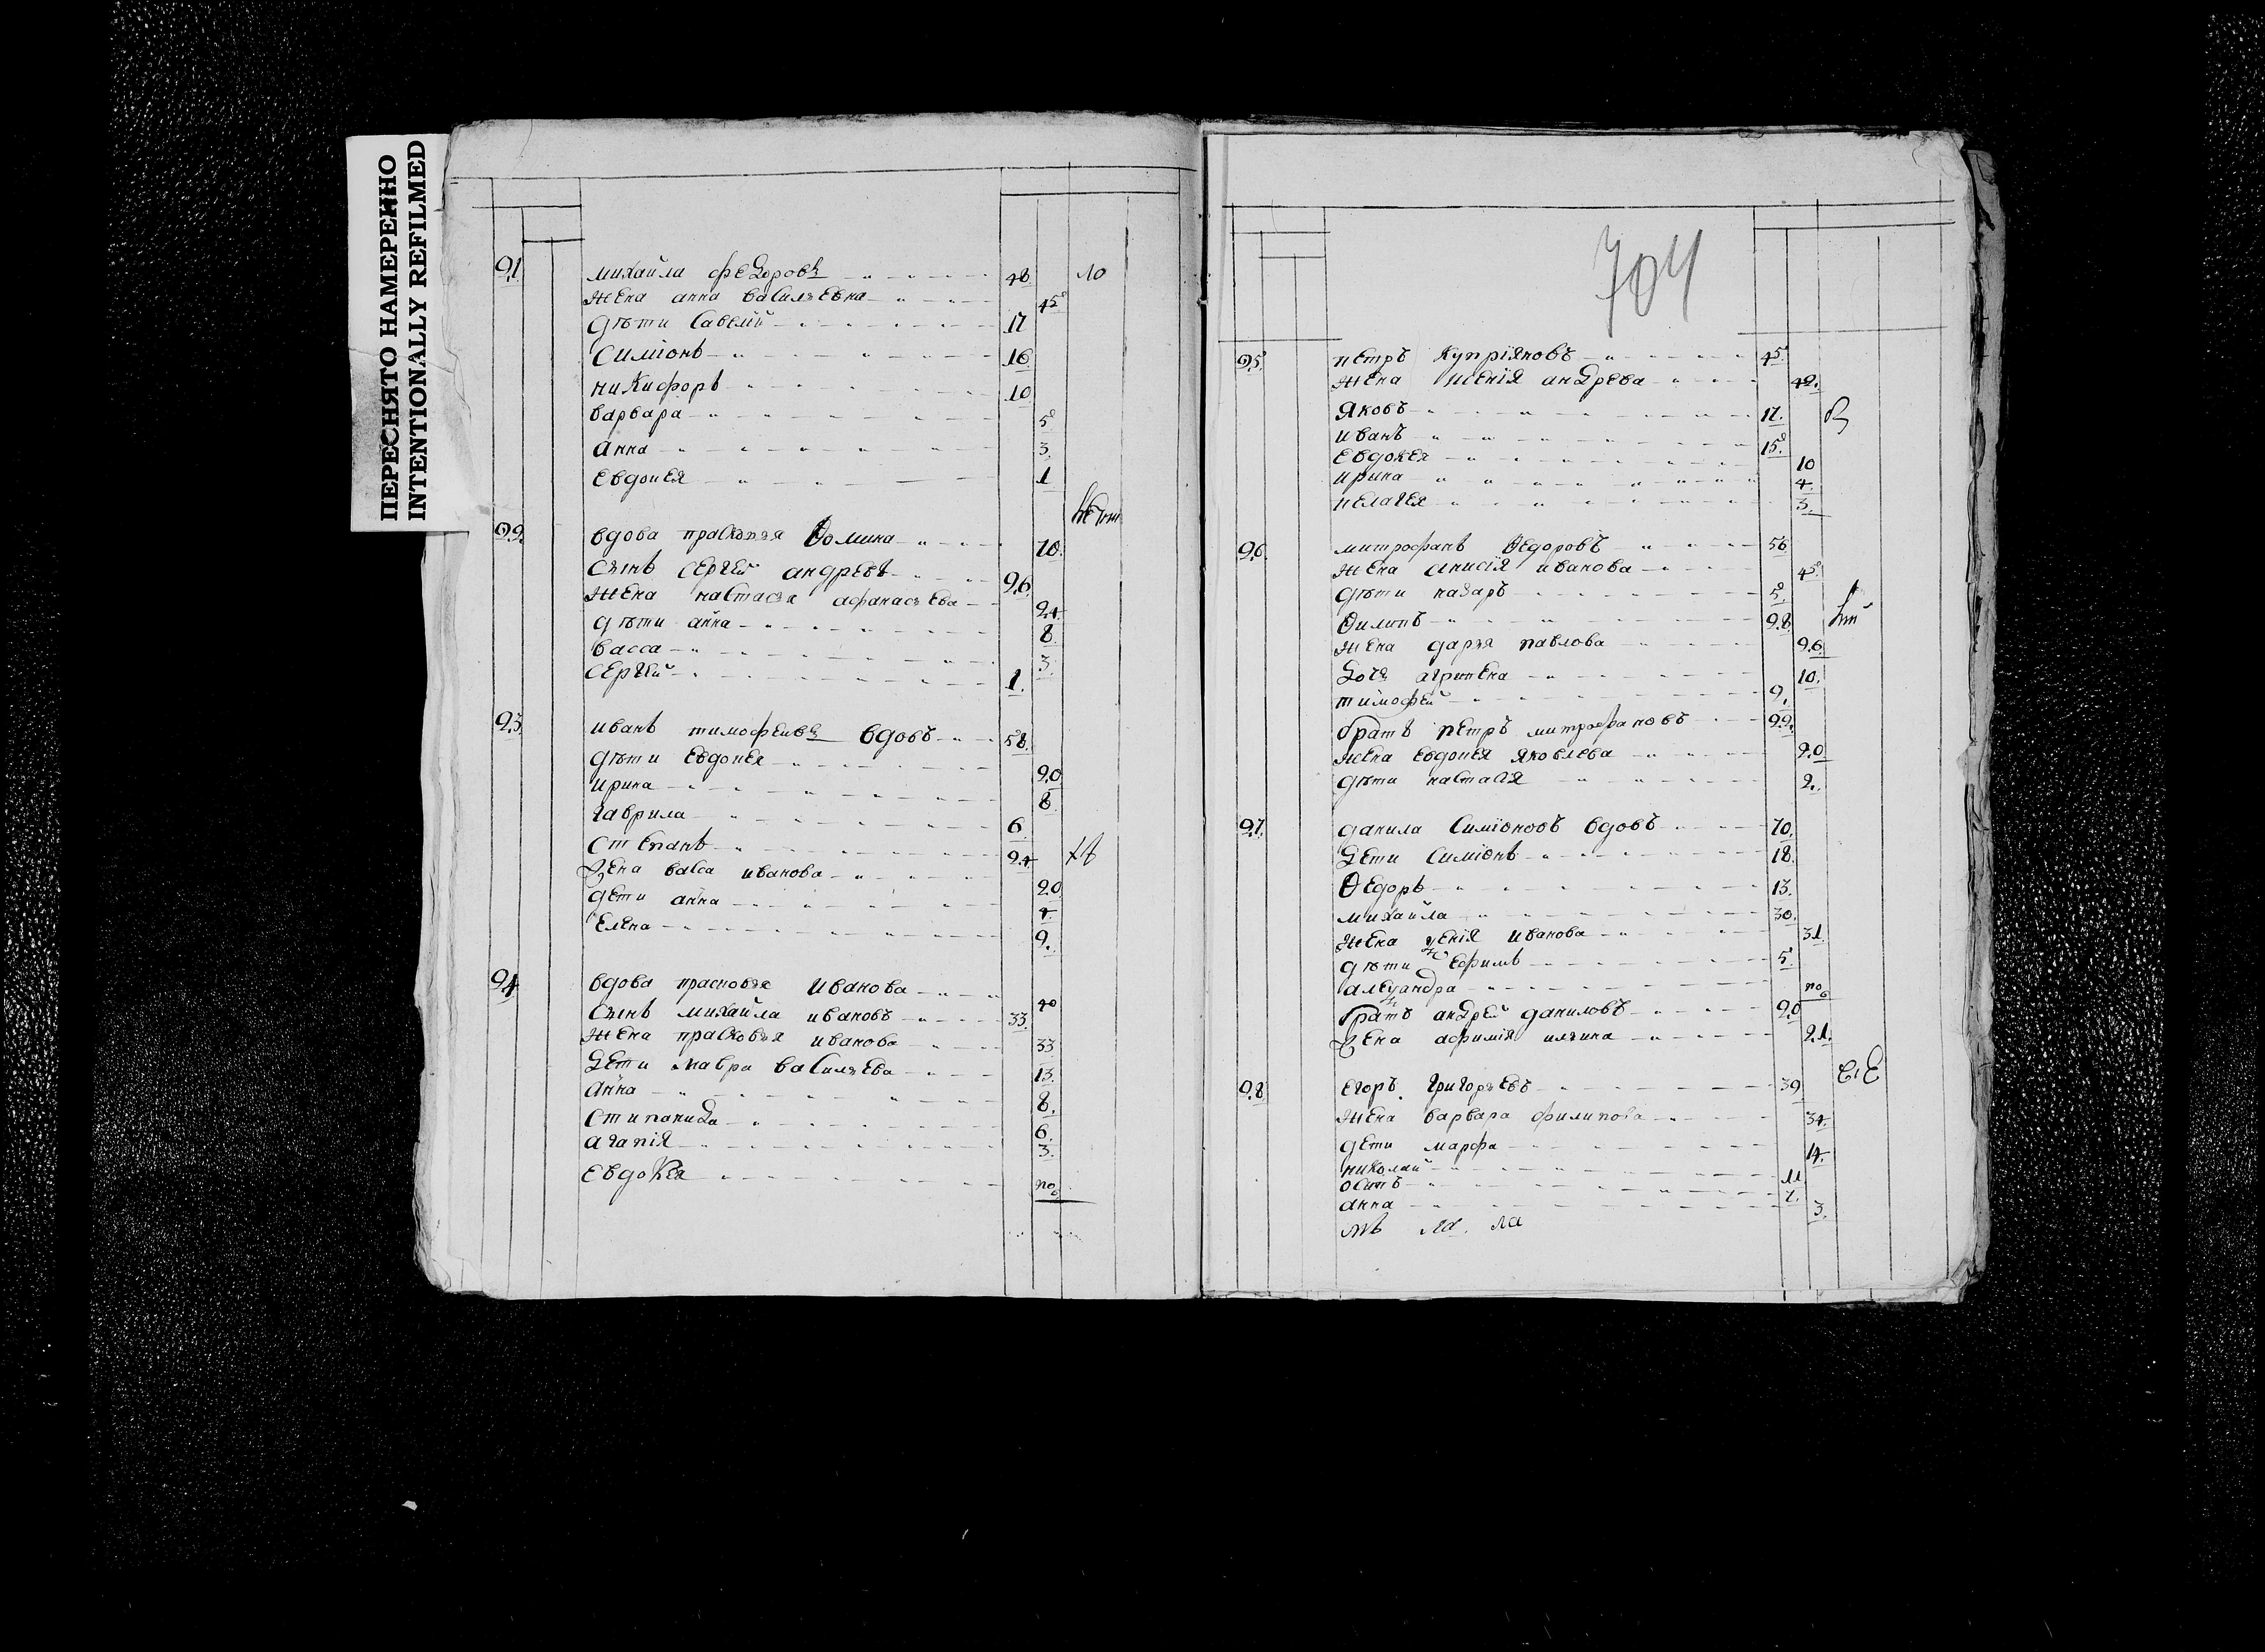 ПЕРЕСНЯТО НАМЕРЕННО
INTENTIONALLY REFILMED
21 михайла феdоровъ 48 10
жена анна васильевна 45
дѣти Савелий 17
Симіонъ 16
никифоръ 10
варвара 5
анна 3
евдокея 1
22 вдова прасковя Ѳомина 70
сынъ сергей андреевъ 26
жена настася афанасьева 24
дѣти анна 8
васса 3
сергей 1
23 иванъ тимофеивъ вдовъ 58
дѣти евдокея 20
ирина 8
гаврила 6
степанъ 24
жена васса иванова 20
дети анна 4
елена 2
24 вдова прасковя иванова 70
сынъ михайла ивановъ 33
жена прасковья иванова 33
дети мавра васильева 13
анна 8
стипанида 6
агапія 3
евдокея по
704
25 петръ Куприяновъ 45
жена андрева 42
яковъ 17
иванъ 15
евдокея 10
ирина 4
пелагея 3
26 митрофанъ Ѳедоровъ 56
жена анисия иванова 45
дѣти назаръ 5
Ѳилипъ 28
жена даря павлова 26
дочя агрипена 10
тимофей 2
братъ петръ митрофановъ 22
жена евдокея яковлева 20
дѣти настася 2
27 данила Симіоновъ вдовъ 70
дети Симіонъ 18
Ѳедоръ 13
михайла 30
жена ѯенія иванова 31
дѣти ефимъ 5
алеѯандра по
братъ андрей даниловъ 20
жена афимія ильина 21
28 егоръ григорьевъ 39
жена варвара филипова 34
дети марфа 14
николай 11
осипъ 7
анна 3